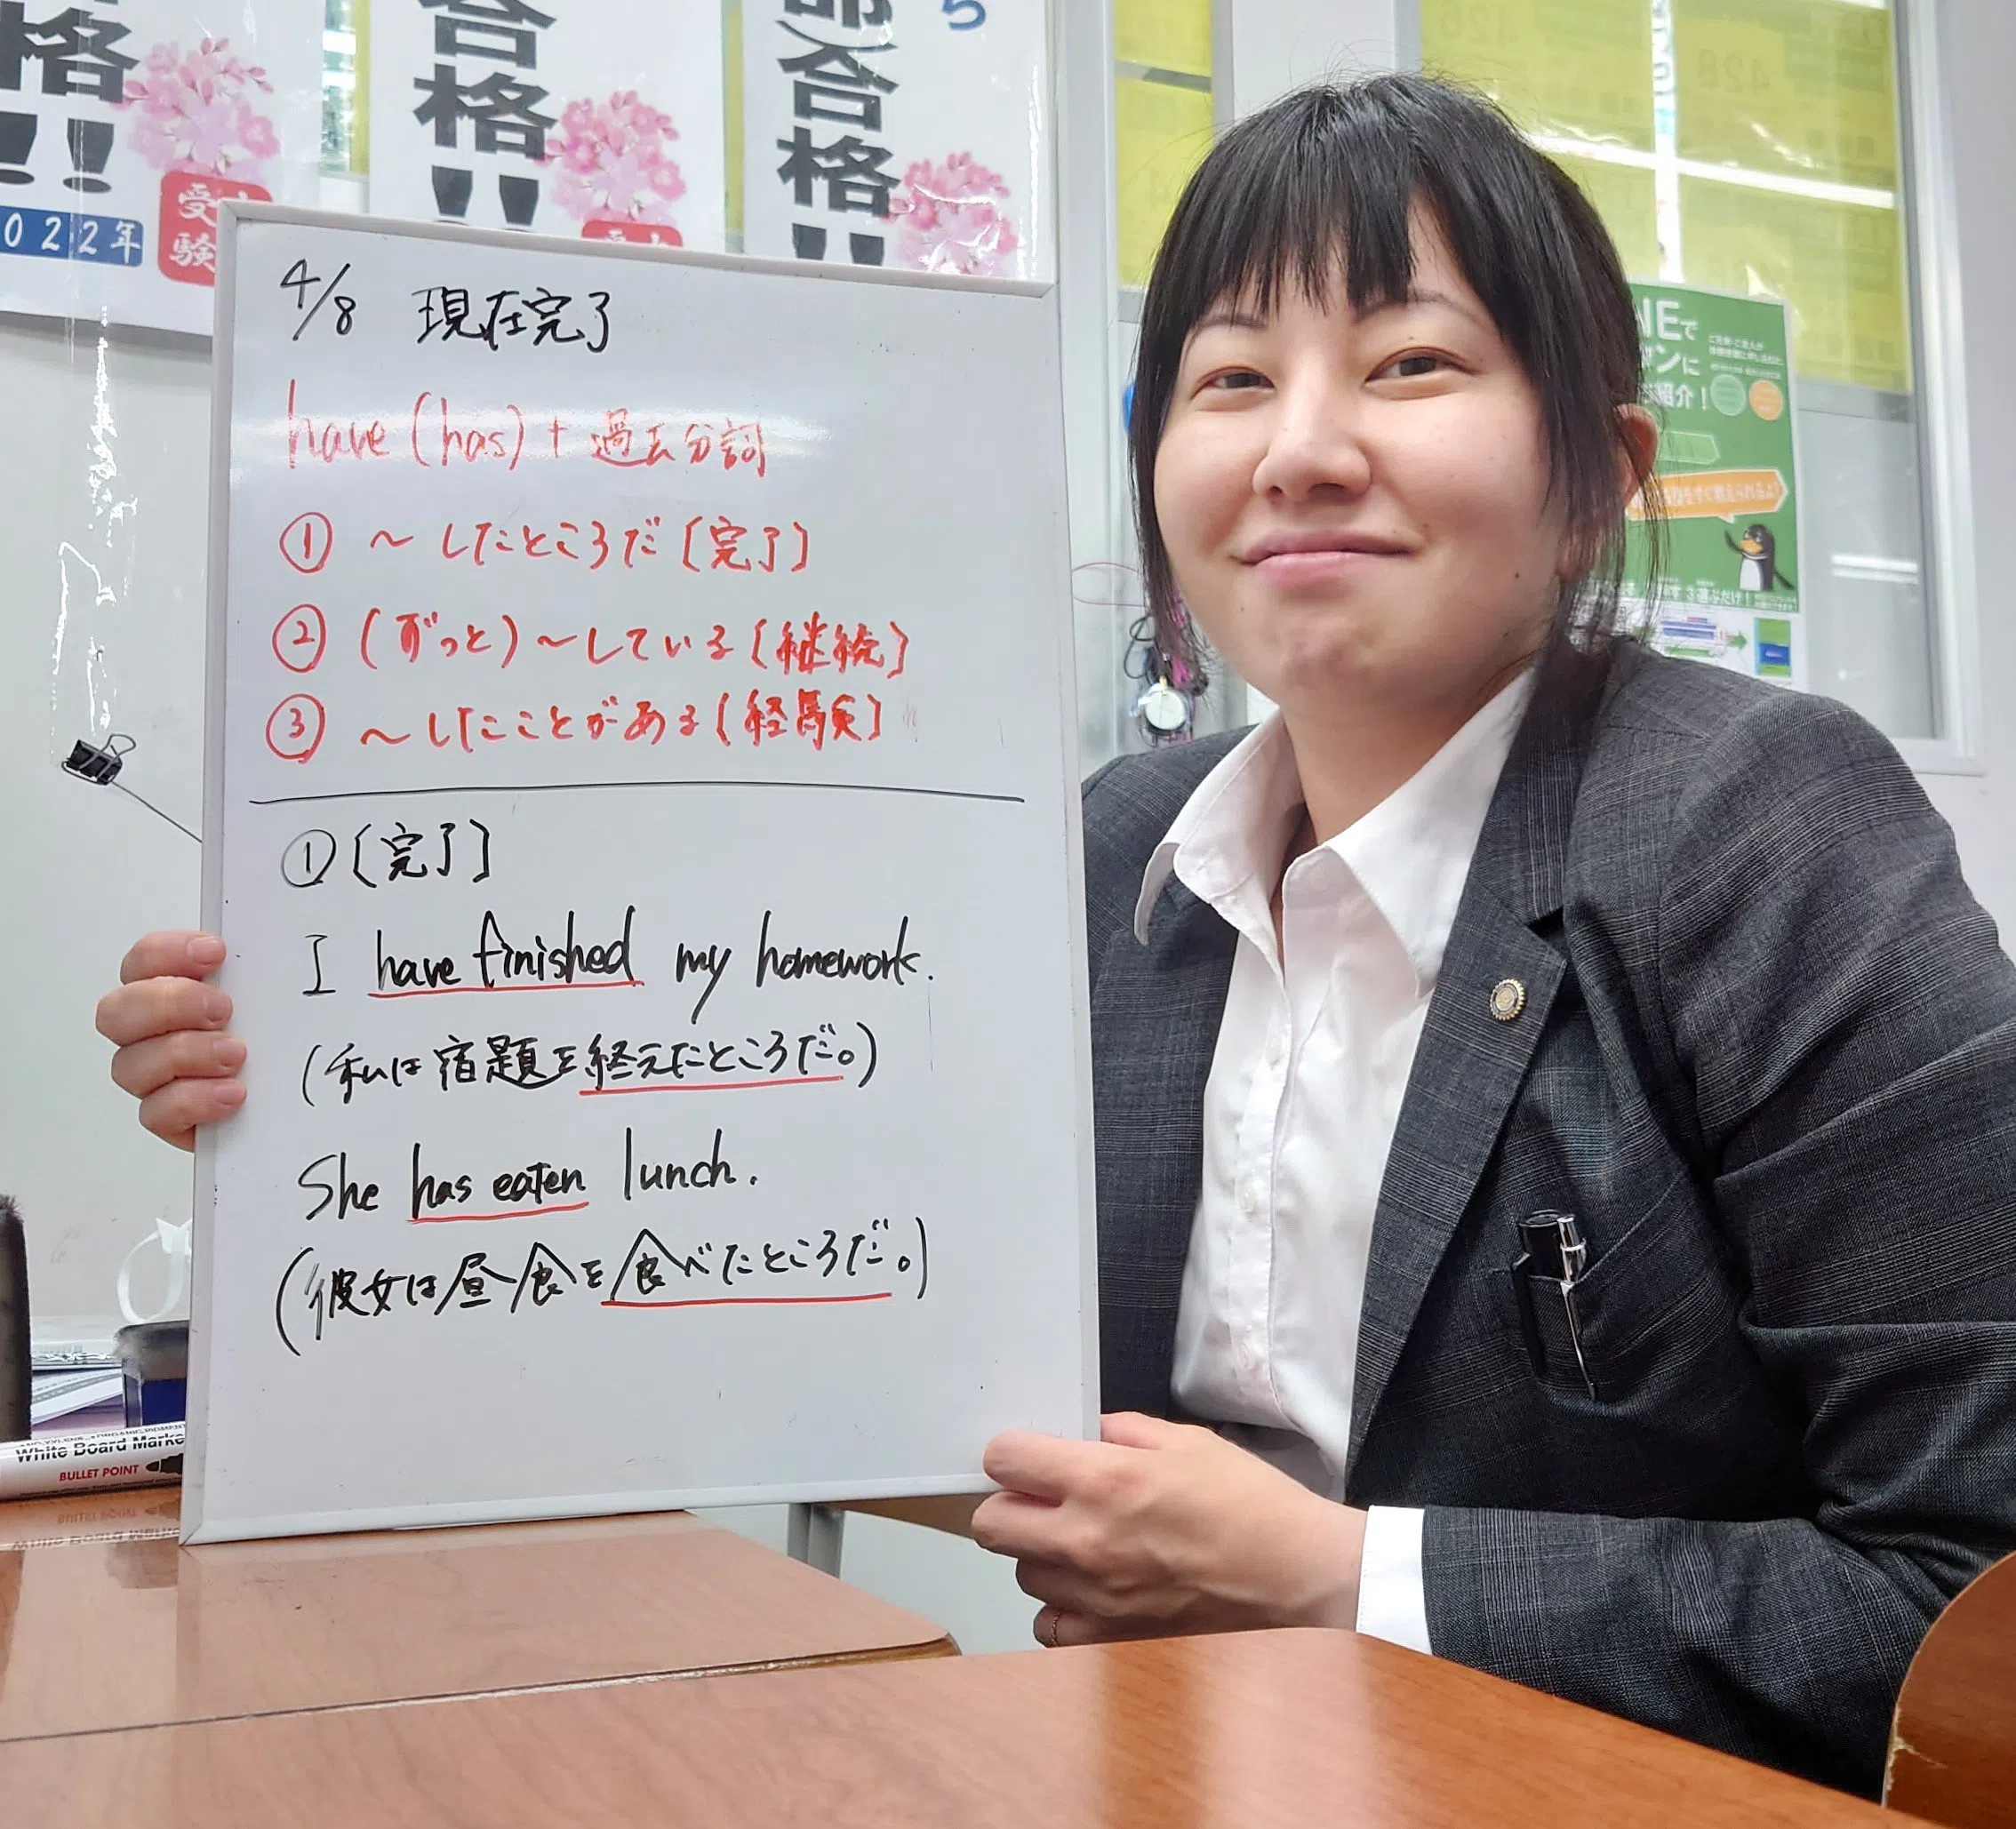 格!!
2022年
受験
合格!!
合格!!
ら
4/8 現在完了
have (has) + 過去分詞
① ～したところだ〔完了〕
② (ずっと)～している〔継続〕
③ ～したことがある〔経験〕
①〔完了〕
I have finished my homework.
(私は宿題を終えたところだ。)
She has eaten lunch.
(彼女は昼食を食べたところだ。)
426
428
で
ンに
紹介！
White Board Marke
BULLET POINT